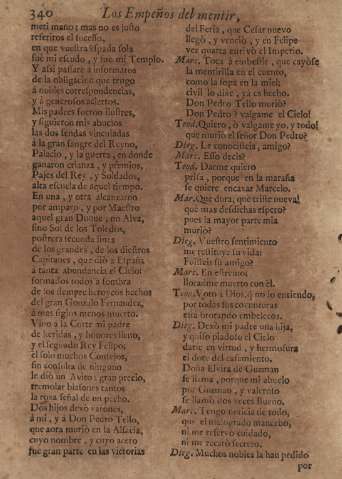 340 Los Empeños del mentir,
meri mano; mas no es justo
referiros el sucesso,
en que vuestra espada sola
fue mi escudo, y fue mi Templo.
Y assi passare a informaros
de la obligacion que tengo
à nobles correspondencias,
y à generosos aciertos.
Mis padres fueron ilustres,
y siguieron mis abuelos
las dos sendas vinculadas
à la gran sangre del Reyno,
Palacio, y la guerra, en donde
ganaron crianza, y premios,
Pajes del Rey, y Soldados,
alta escuela de aquel tiempo.
En una, y otra alcanzaron
por amparo, y por Maestro
aquel gran Duque, no Alva,
sino Sol de los Toledos,
postrera segunda linea
de los grandes, de los diestros
Capitanes, que diò à España
à tanta abundancia el Cielo!
formados todos à sombra
de los siempre heroycos hechos
del gran Gonzalo Fernandez,
à mas siglos menos muerto.
Vino à la Corte mi padre
de heridas, y honores lleno,
y el segundo Rey Felipe,
él solo muchos Consejos,
sin consulta de ninguno
le diò un Avito: gran precio,
tremolar blasones tantos
la roxa señal de un pecho.
Dos hijos dexò varones,
à mi, y à Don Pedro Tello,
que aora murio en la Alsacia,
cuyo nombre, y cuyo acero
fue gran parte en las victorias
del Feria, que Cesar nuevo
llegò, y venciò, y en Felipe
ver quarta embiò el Imperio.
Marc. Toca à embestir, que cayòse
la mentirilla en el cuento,
como la sopa en la miel;
civil lo dixe, ya es hecho.
Don Pedro Tello murio?
Don Pedro? valgame el Cielo!
Teod. Quiero, ò valgame yo, y todo!
que muriò el señor Don Pedro?
Dieg. Le conocisteis, amigo?
Marc. Esso decis?
Teod. Darme quiero
prisa, porque en la maraña
se quiere encaxar Marcelo.
Mar. Que dura, què triste nueva!
què mas desdichas espero?
pues la mayor parte mia
murio?
Dieg. Vuestro sentimiento
me restituye su vida:
Fuisteis su amigo?
Marc. En estremo:
llorarème muerto con èl.
Teod. Voto à Dios, que no lo entiendo,
por todas sus coyunturas
està brotando embelecos.
Dieg. Dexò mi padre una hija,
y quiso piadoso el Cielo
darle en virtud, y hermosura
el dote del casamiento.
Doña Elvira de Guzman
se llama, porque mi abuelo
fue Guzman, y valeroso
se llamò dos veces Bueno.
Marc. Tengo noticia de todo,
que el malogrado mancebo,
ni me reservò cuidado,
ni me recatò secreto.
Dieg. Muchos nobles la han pedido
por